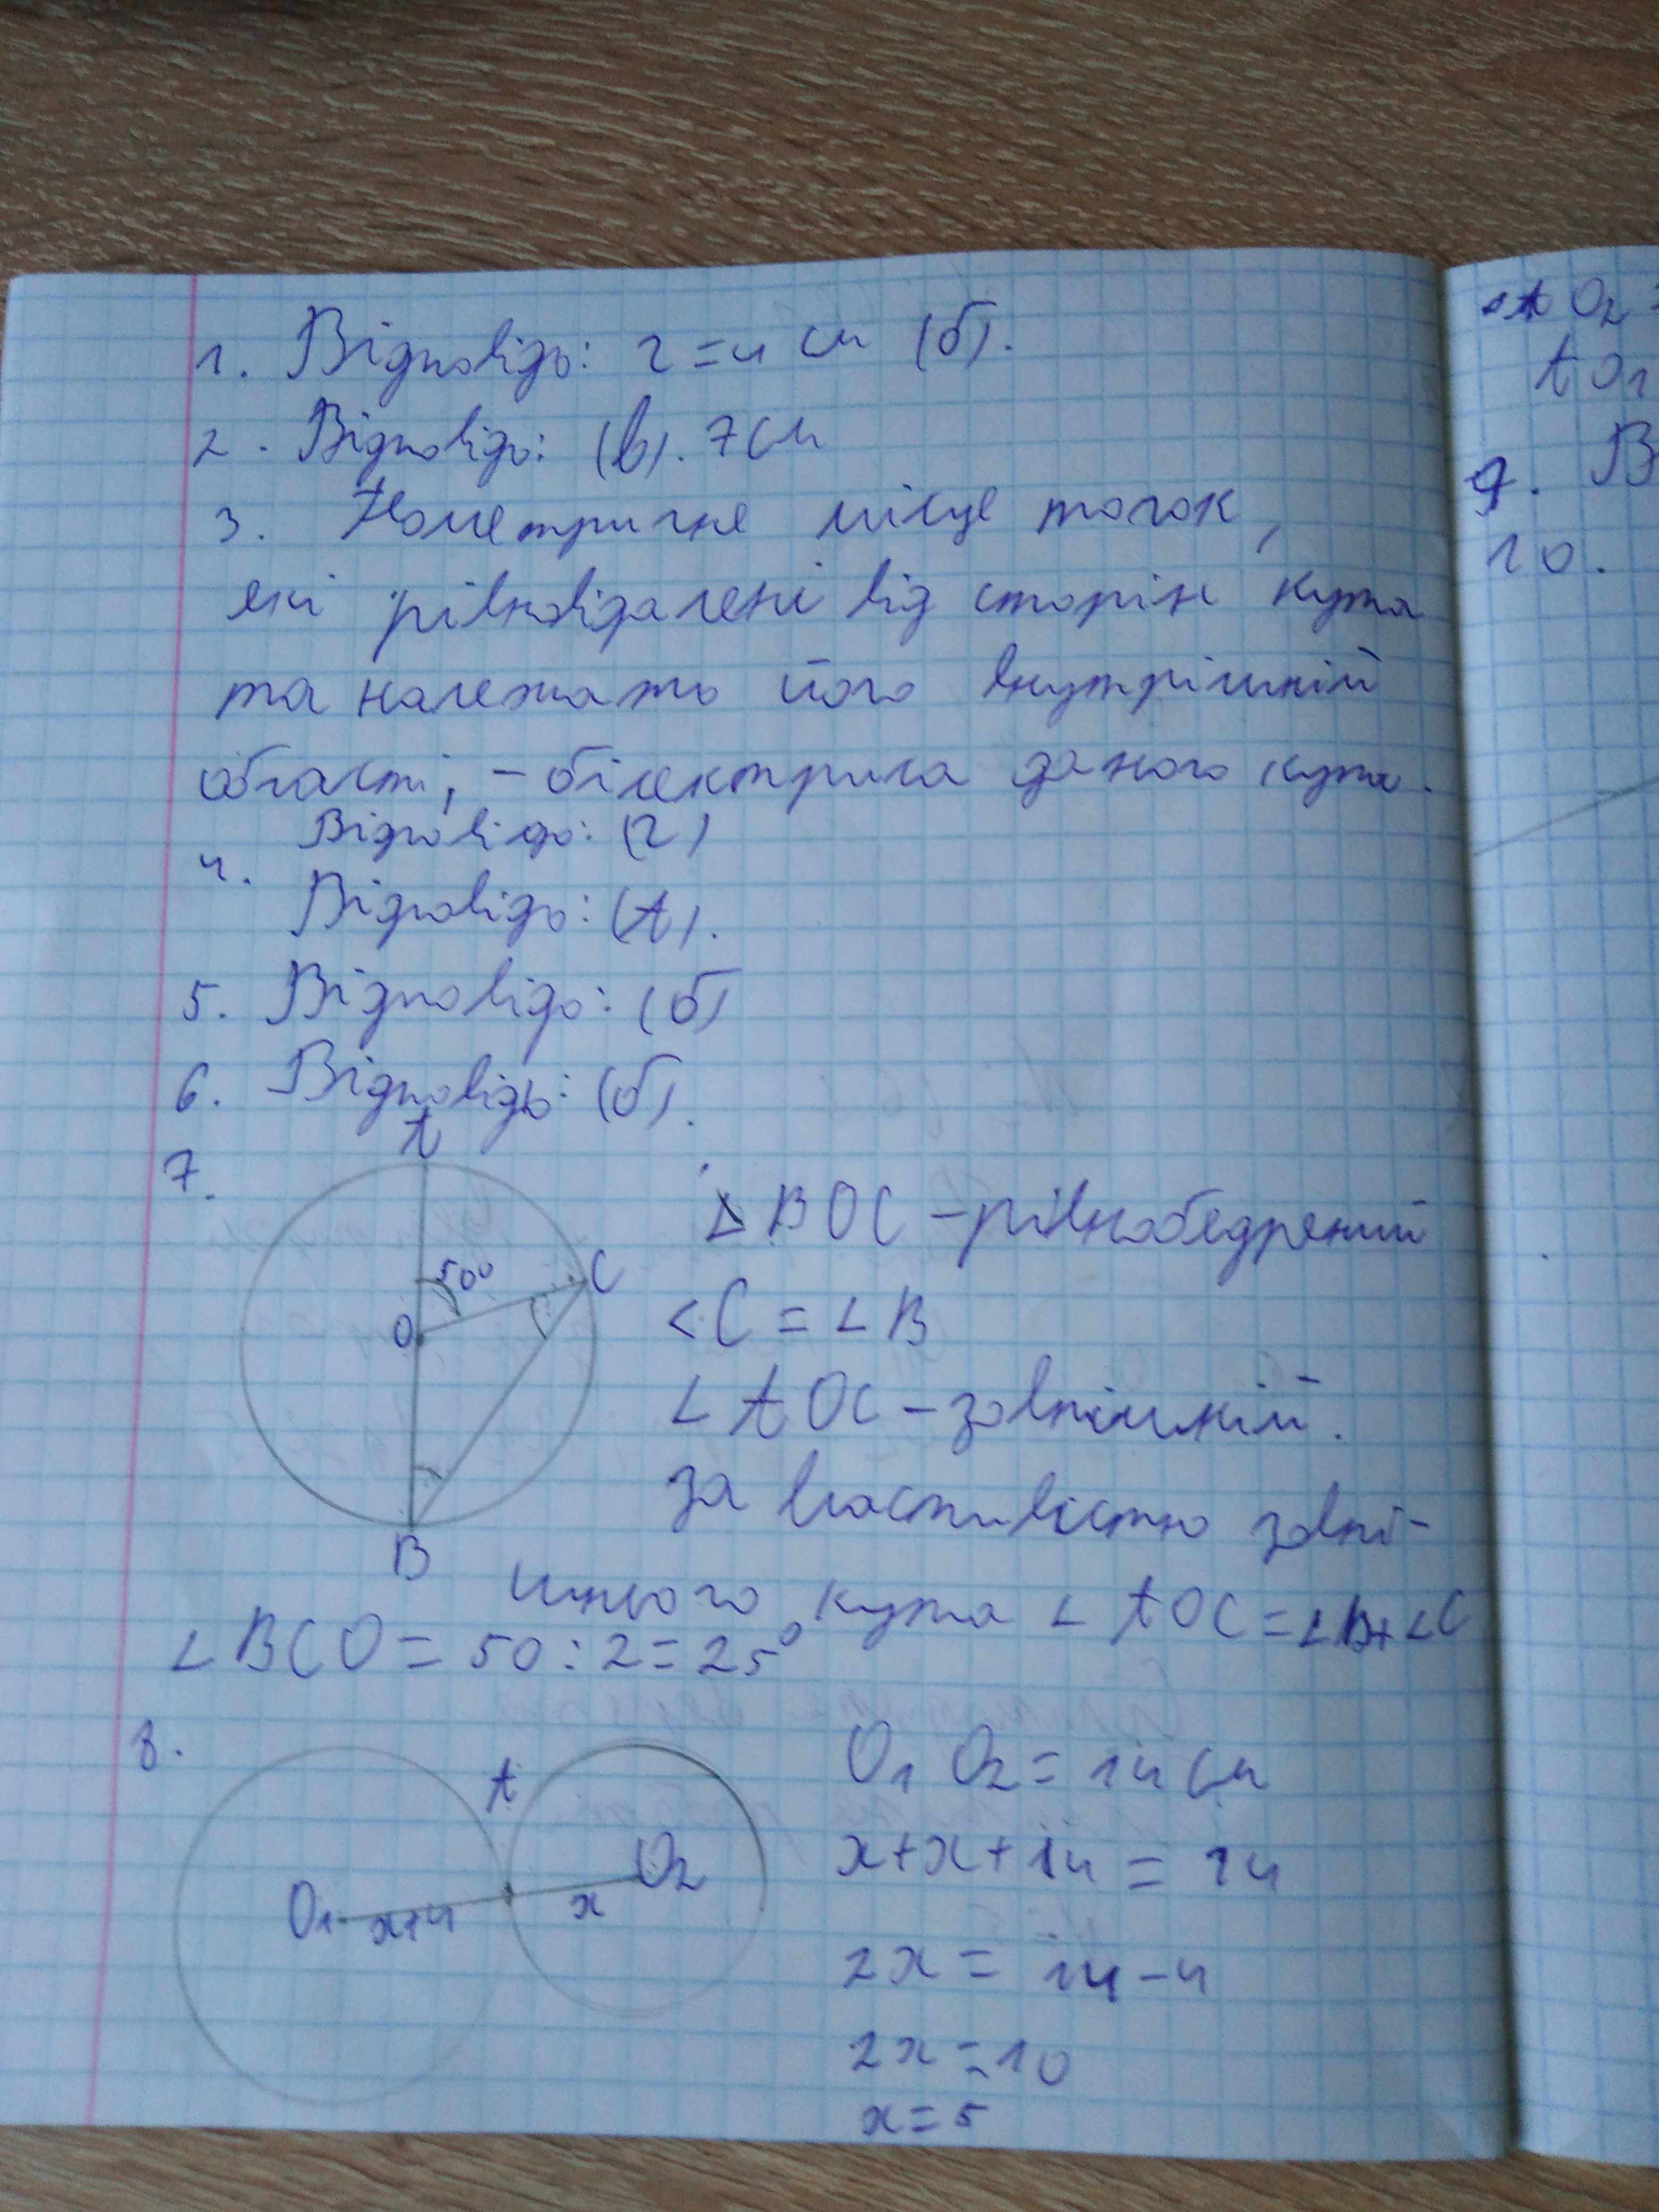 1. Відповідь: r = 4 см (б).
2. Відповідь: (в). 7 см
3. Геометричне місце точок,
які рівновідалені від сторін кута
та належать його внутрішній
області, – бісектриса даного кута.
Відповідь: (г)
4.
Відповідь: (А).
5. Відповідь: (б)
6. Відповідь: (б).
7.
A
50°
C
O
B
Δ BOC – рівнобедрений
∠C = ∠B
∠AOC – зовнішній.
за властивістю зовні-
шнього кута ∠AOC = ∠B+∠C
∠BCO = 50 : 2 = 25°
8.
A
O1
x+4
x
O2
O1 O2 = 14 см
x+x+14 = 14
2x = 14 – 4
2x = 10
x = 5
AO2 =
AO1
9. В
10.